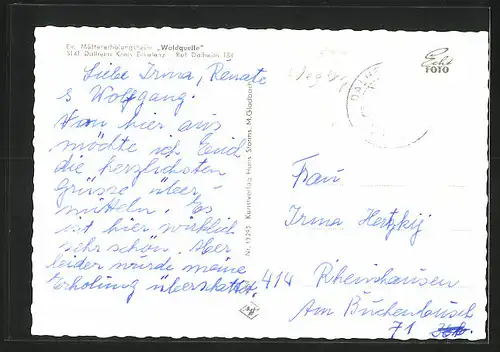 Ev. Müttererholungsheim „Waldquelle"
5141 Dalheim Kreis Erkelenz · Ruf Dalheim 184
Liebe Irma, Renate
& Wolfgang.
Von hier aus
möchte ich Euch
die herzlichsten
Grüsse über-
mitteln. Es
ist hier wirklich
sehr schön. Aber
leider wurde meine
Erholung überschattet.
Nr. 13293 Kunstverlag Hans Storms, M.Gladbach
Echt
FOTO
DALHEIM
Frau
Irma Hertzkij
414 Rheinhausen
Am Buchenbusch
71